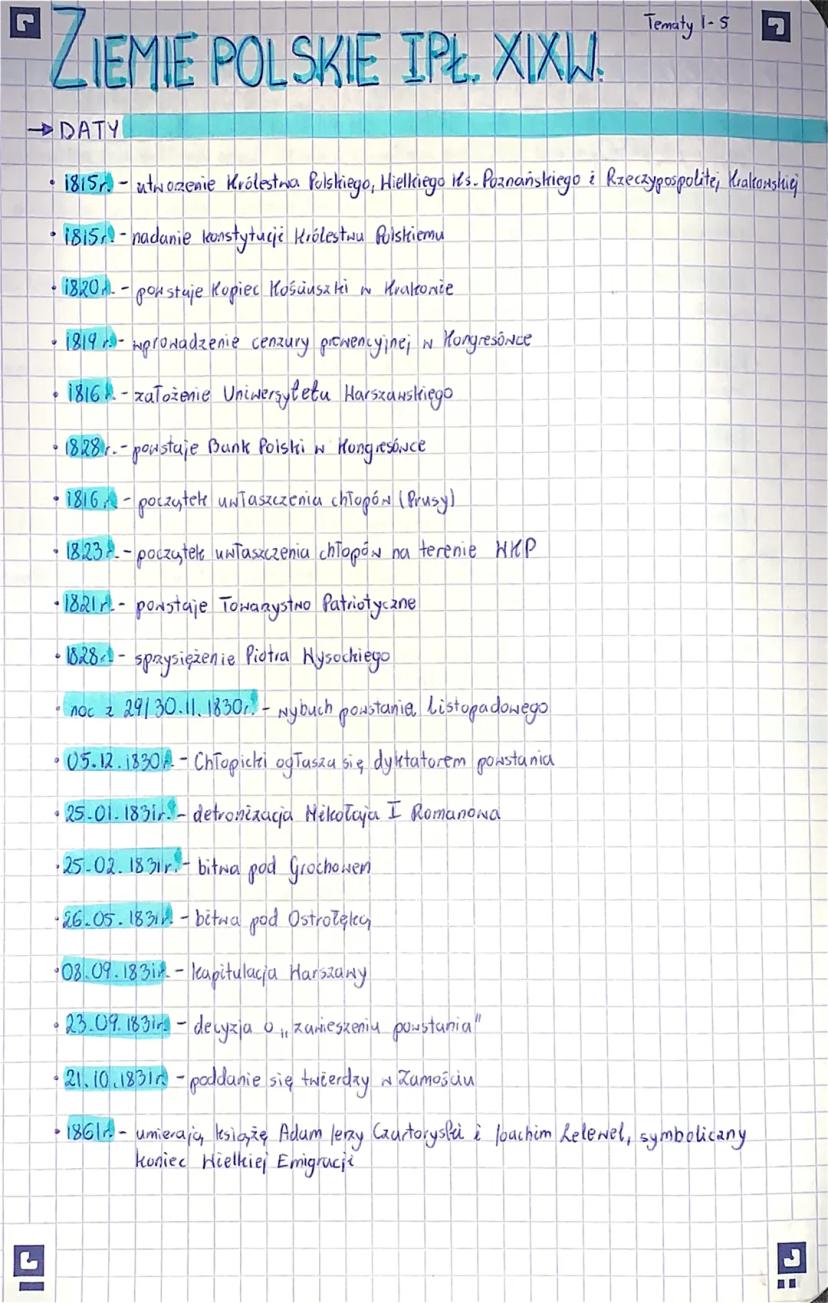 Tematy 1-5
ZIEMIE POLSKIE I PŁ. XIX W.
→ DATY
• 1815r. - utworzenie Królestwa Polskiego, Wielkiego Ks. Poznańskiego i Rzeczypospolitej Krakowskiej
• 1815r. - nadanie konstytucji Królestwu Polskiemu
• 1820r. - powstaje Kopiec Kościuszki w Krakowie
• 1819r. - wprowadzenie cenzury prewencyjnej w Kongresówce
• 1816r. - założenie Uniwersytetu Warszawskiego
• 1828r. - powstaje Bank Polski w Kongresówce
• 1816r. - początek uwłaszczenia chłopów (Prusy)
• 1823r. - początek uwłaszczenia chłopów na terenie WKP
• 1821r. - powstaje Towarzystwo Patriotyczne
• 1828r. - sprzysiężenie Piotra Wysockiego
• noc z 29/30.11.1830r. - wybuch powstania listopadowego
• 05.12.1830r. - Chłopicki ogłasza się dyktatorem powstania
• 25.01.1831r. - detronizacja Mikołaja I Romanowa
• 25.02.1831r. - bitwa pod Grochowem
• 26.05.1831r. - bitwa pod Ostrołęką
• 08.09.1831r. - kapitulacja Warszawy
• 23.09.1831r. - decyzja o „zawieszeniu powstania"
• 21.10.1831r. - poddanie się twierdzy w Zamościu
• 1861r. - umierają książę Adam Jerzy Czartoryski i Joachim Lelewel, symboliczny
koniec Wielkiej Emigracji